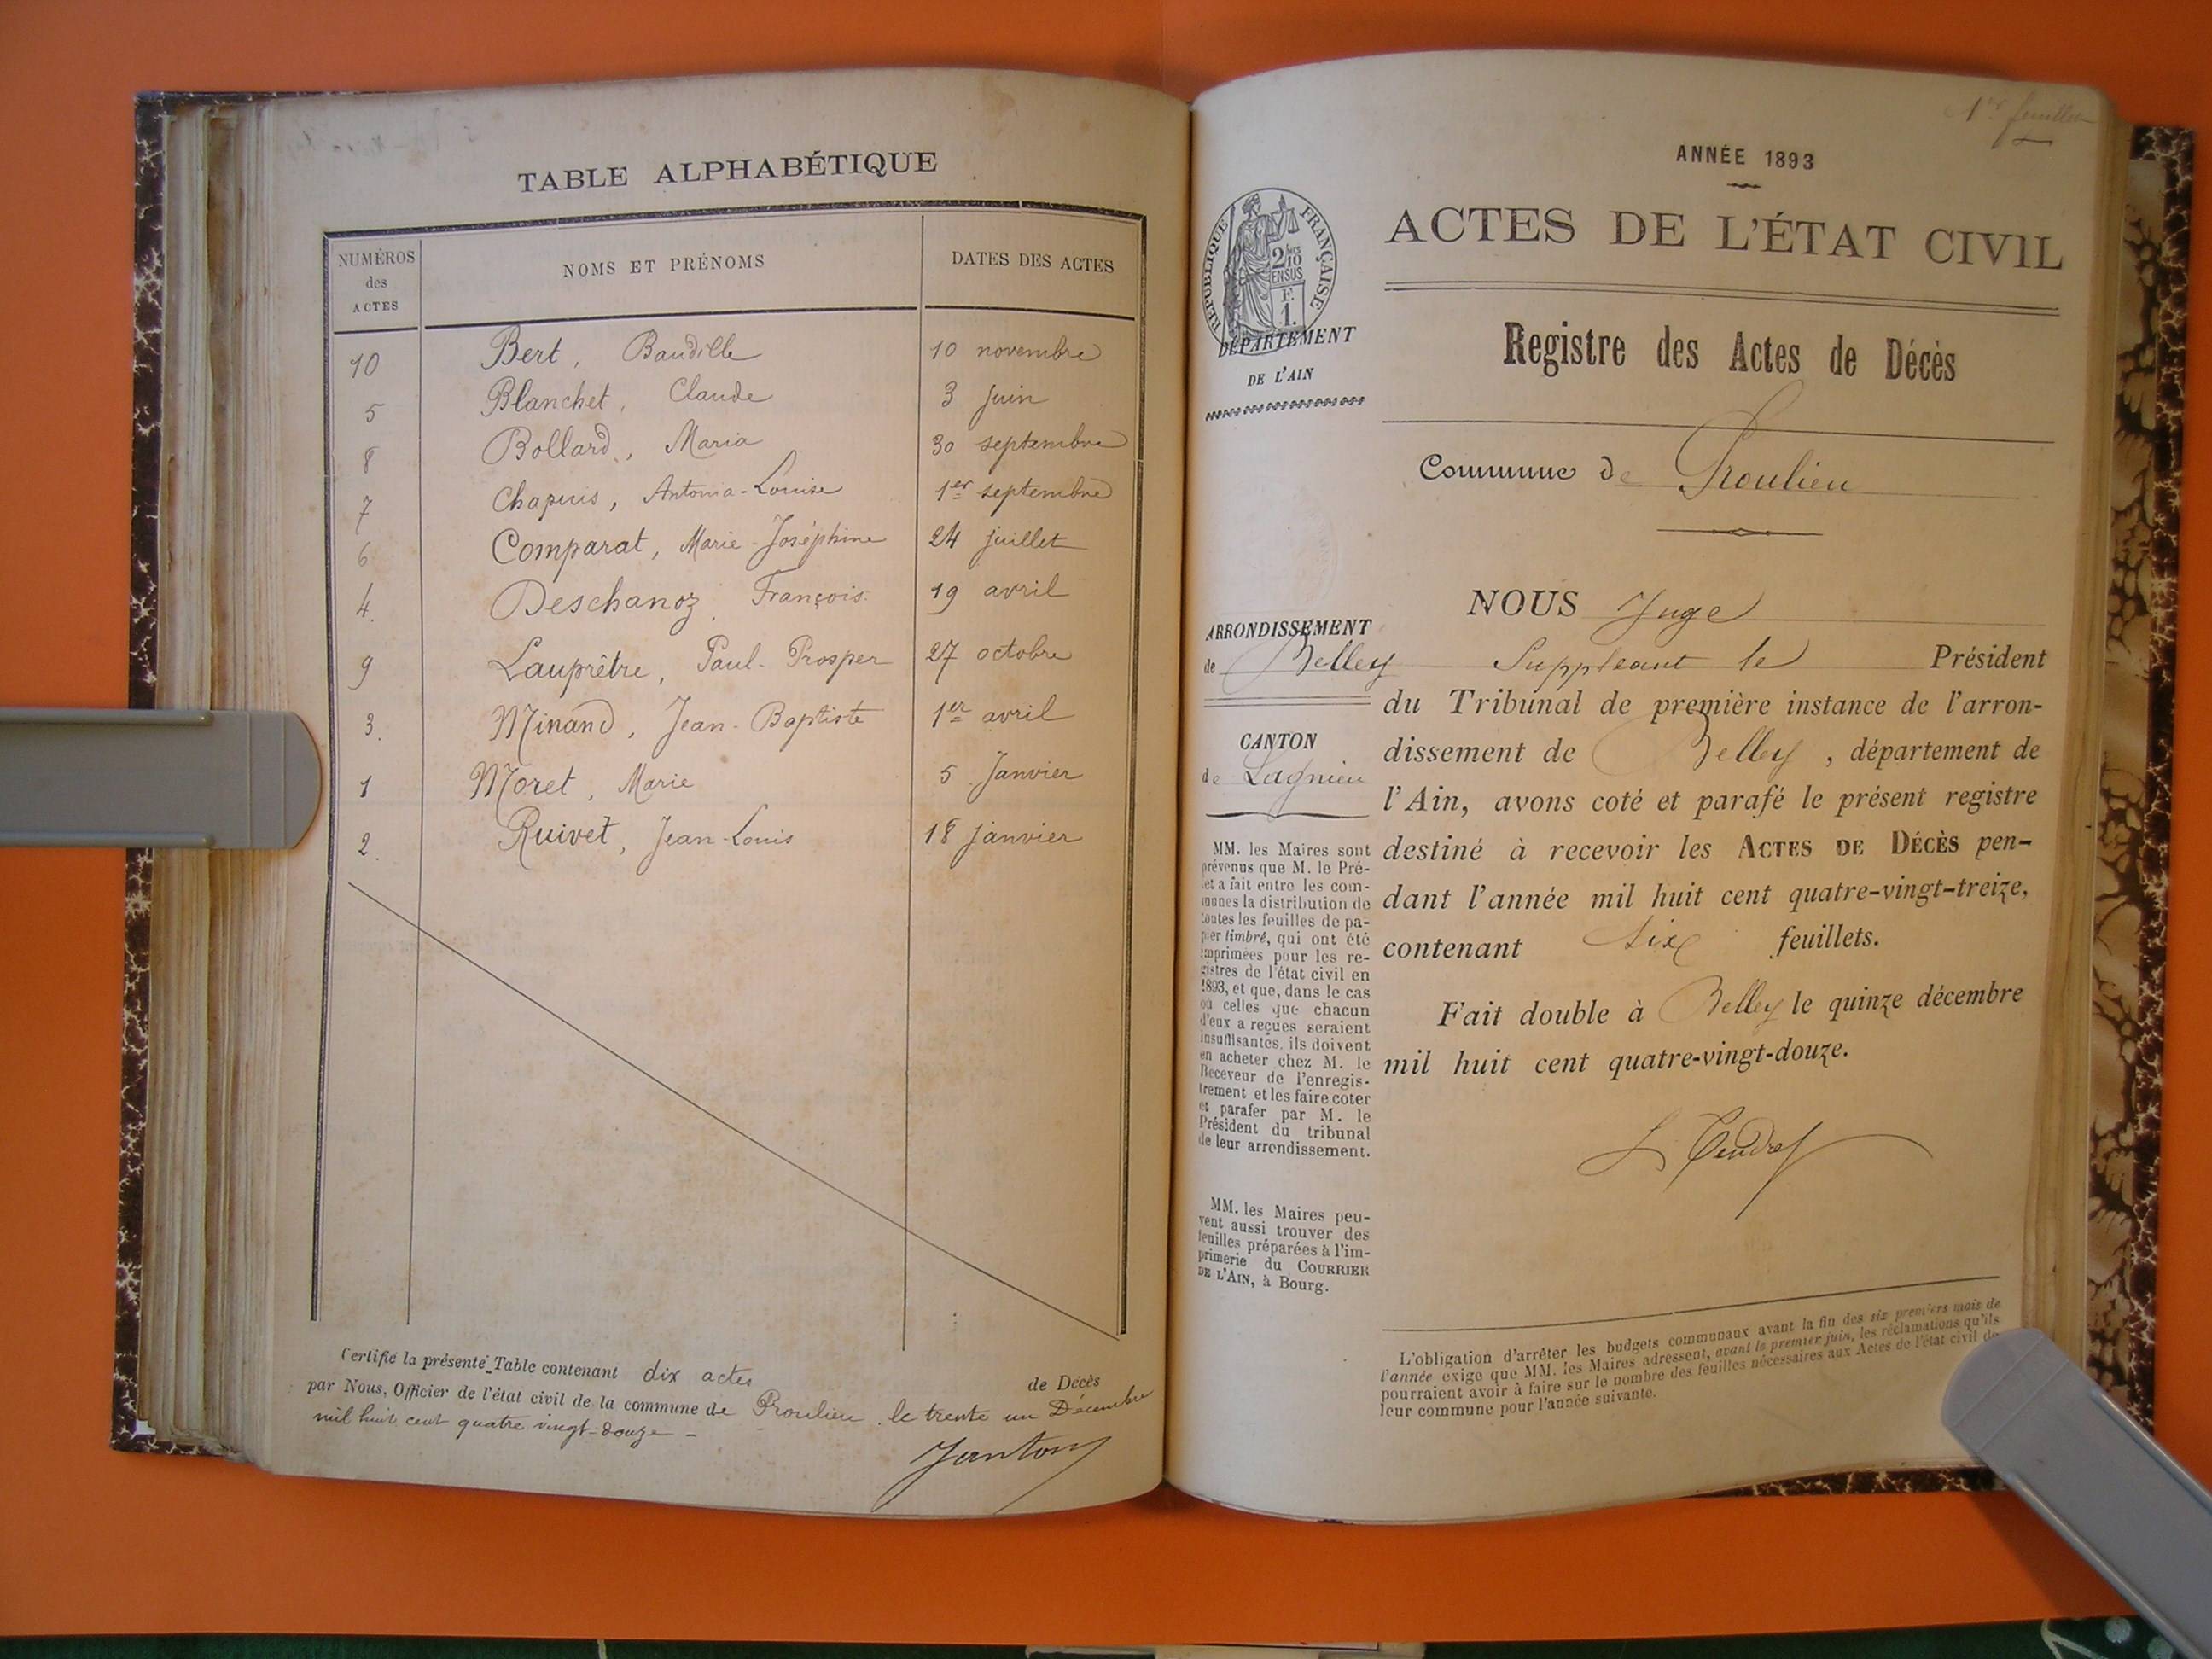 TABLE ALPHABÉTIQUE
NUMÉROS des ACTES NOMS ET PRÉNOMS DATES DES ACTES
10 Bert, Baudille 10 novembre
5 Blanchet, Claude 3 juin
8 Bollard, Maria 30 septembre
7 Chapuis, Antonia-Louise 1er septembre
6 Comparat, Marie-Joséphine 24 juillet
4. Deschanoz, François. 19 avril
9 Lauprêtre, Paul-Prosper 27 octobre
3. Minand, Jean-Baptiste 1er avril
1 Moret, Marie 5 Janvier
2. Ruivet, Jean-Louis 18 janvier
Certifié la présente Table contenant dix actes de Décès
par Nous, Officier de l'état civil de la commune de Proulieu, le trente un Décembre
mil huit cent quatre vingt-douze -
Janton
1er feuillet
ANNÉE 1893
ACTES DE L'ÉTAT CIVIL
RÉPUBLIQUE FRANÇAISE
2/10
EN SUS
F.
1.
DÉPARTEMENT
DE L'AIN
Registre des Actes de Décès
Commune de Proulieu
ARRONDISSEMENT
de Belley
CANTON
de Lagnieu
MM. les Maires sont
prévenus que M. le Pré-
fet a fait entre les com-
munes la distribution de
toutes les feuilles de pa-
pier timbré, qui ont été
imprimées pour les re-
gistres de l'état civil en
1893, et que, dans le cas
où celles que chacun
d'eux a reçues seraient
insuffisantes, ils doivent
en acheter chez M. le
Receveur de l'enregis-
trement et les faire coter
et parafer par M. le
Président du tribunal
de leur arrondissement.
MM. les Maires peu-
vent aussi trouver des
feuilles préparées à l'im-
primerie du COURRIER
DE L'AIN, à Bourg.
NOUS Juge
Suppléant le Président
du Tribunal de première instance de l'arron-
dissement de Belley, département de
l'Ain, avons coté et parafé le présent registre
destiné à recevoir les ACTES DE DÉCÈS pen-
dant l'année mil huit cent quatre-vingt-treize,
contenant six feuillets.
Fait double à Belley le quinze décembre
mil huit cent quatre-vingt-douze.
L'obligation d'arrêter les budgets communaux avant la fin des six premiers mois de
l'année exige que MM. les Maires adressent, avant le premier juin, les réclamations qu'ils
pourraient avoir à faire sur le nombre des feuilles nécessaires aux Actes de l'état civil de
leur commune pour l'année suivante.